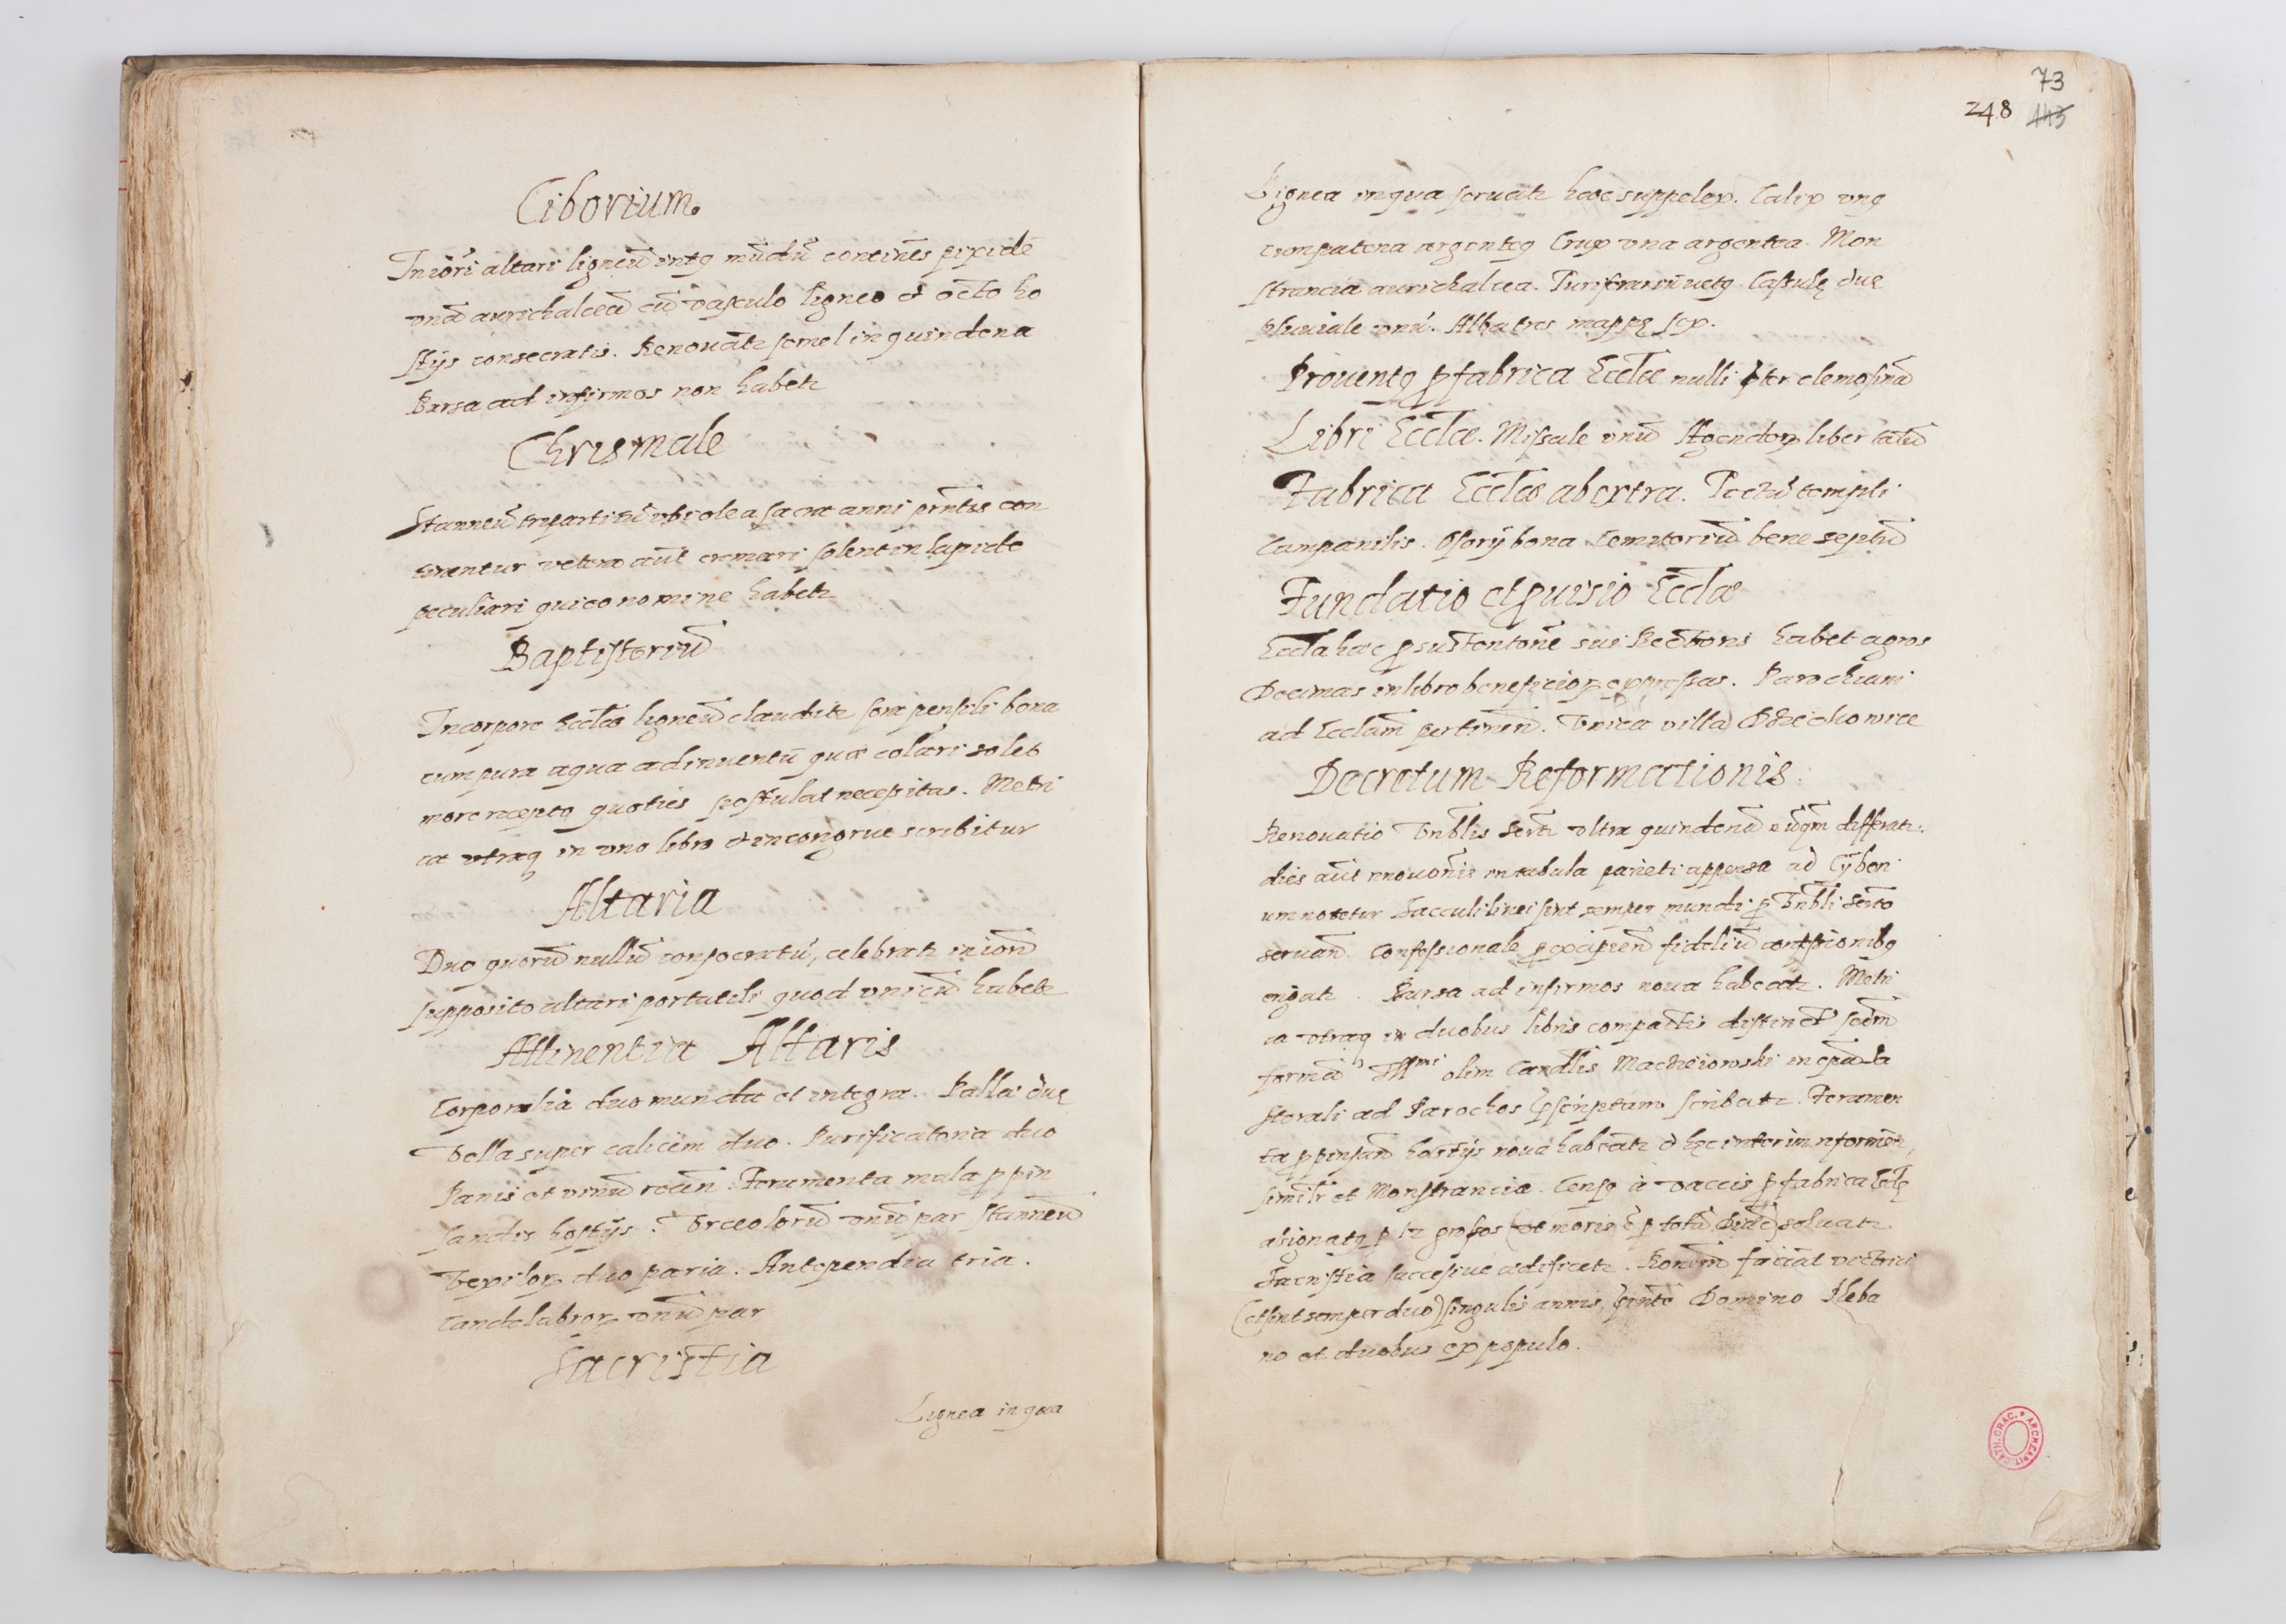 Ciborium.
In iori altari ligneū intq mūdū contines pixidē
vnā aurichalceā cū vasculo ligneo et octo ho
stijs consecratis. Renouātr semel in quindena
Bursa ad infirmos non habetr
Chrismale
Stanneū tripartitū vbi olea sacra anni pntis con
tinentur vetera aūt cremari solent in lapide
peculiari qui eo nomine habetr
Baptisteriū
In corpore Ecclæ ligneū clauditr sera pensili bona
cum pura aqua ad inuentū quæ colari solet
more recepto quoties postulat necessitas. Metri
ca vtraq in vno libro et incongrue scribitur
Altaria
Duo quorū nullū consecratū, celebratr in iori
supposito altari portatili quod vnicū habetr
Attinentia Altaris
Corporalia duo munda et integra. Palla duę
Vella super calicem duo. Purificatoria duo
Panis et vinū recen. Feramenta mala p pin
sandis hostijs. Vrceolorū vnū par stanneū
Vexilor duo paria. Antependia tria.
Candelabror vnū par
Sacristia
Lignea in qua
73
248 143
Lignea in qua seruatr hæc suppelex. Calix vnq
cum patena argenteq Crux vna argentea. Mon
strancia aurichalcea. Turiferariū vetq. Casulę duę
pluuiale vnū. Alba tres mappę sex.
Prouentq p fabrica Ecclæ nulli pter elemosinā
Libri Ecclæ. Missale vnū Agendor liber tātū
Fabrica Ecclæ ab extra. Tectū templi
Campanilis. Osorij bona Cemitoriū bene septū
Fundatio et puisio Ecclæ
Eccla hæc p sustentōne sui Rectoris habet agros
Decimas in libro beneficior expressas. Parochiani
ad Ecclam pertinen. Vnica villa Dziechowice
Decretum Reformationis.
Renouatio Vnblis Scrti vltra quindenā nūqm differatr.
dies aūt renouōnis in tabula parieti appensa ad Cybori
um notetur Sacculi linei sint semper mundi p Vnbli Scrto
seruan. Confessionale p excipien fideliū confessionibq
erigatr. Bursa ad infirmos noua habeatr. Metri
ca vtraq in duobus libris compactis distinct scdm
formā Illmi olim Cardlis Maczieiowski in epla Pa
storali ad Parochos pscriptam scribatr. Feramen
ta p pinsan hostijs noua habeātr et hęc interim reformētr,
similr et Monstrancia. Censq à vaccis p fabrica Eclę
asignatq p 12 grossos (vt moris ē p totā Diæc) soluatr.
Sacristia succesiue ædificetr. Ronem faciāt vectrici
(et sint semper duo) singulis annis, pnte Domino Pleba
no et duobus ex populo.
ARCH. CAPIT. CATH. CRAC.